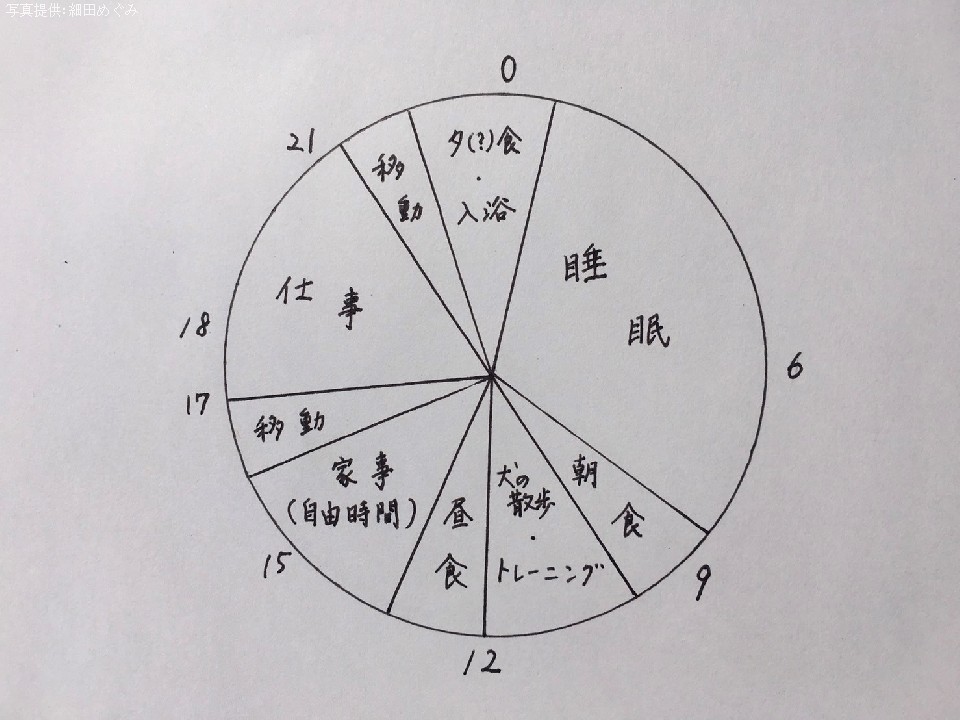 写真提供: 細田めぐみ
0
夕(?)食
・
入浴
睡
眠
6
朝
食
9
犬の
散歩
・
トレーニング
12
昼
食
家事
(自由時間)
15
移動
17
18
仕
事
21
移
動